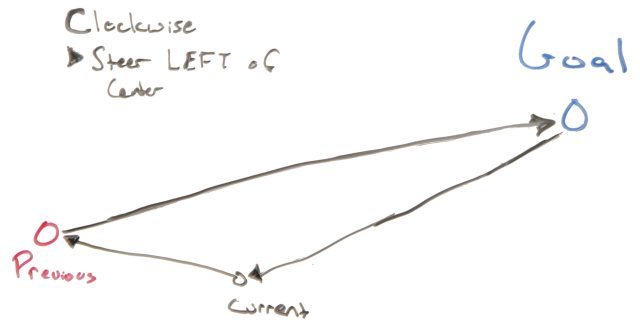 Clockwise
▶ Steer LEFT of
Center
Goal
Previous
Current